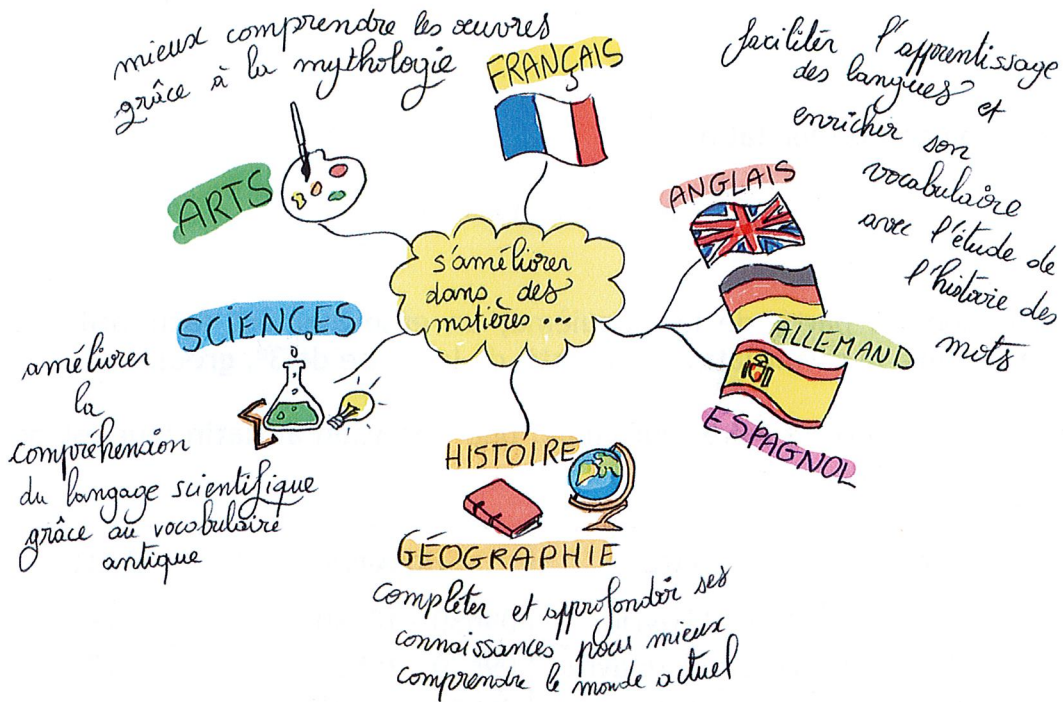 mieux comprendre les œuvres
grâce à la mythologie
FRANÇAIS
faciliter l'apprentissage
des langues et
enrichir son
vocabulaire
avec l'étude de
l'histoire des
mots
ARTS
ANGLAIS
s'améliorer
dans des
matières ...
SCIENCES
ALLEMAND
ESPAGNOL
améliorer
la
compréhension
du langage scientifique
grâce au vocabulaire
antique
HISTOIRE
GÉOGRAPHIE
compléter et approfondir ses
connaissances pour mieux
comprendre le monde actuel